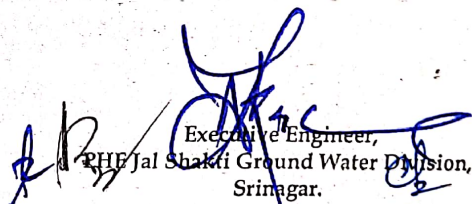 Executive Engineer,
PHE Jal Shakti Ground Water Division,
Srinagar.